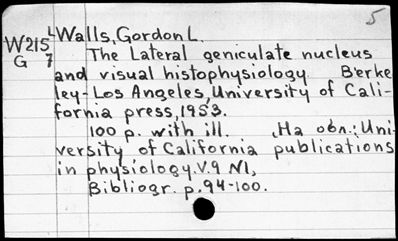 5
W215 L Walls, Gordon L.
G 7 The Lateral geniculate nucleus
and visual histophysiology. Berke
ley-Los Angeles, University of Cali-
fornia press, 1953.
100 p. with ill. , На обл.: Uni-
versity of California publications
in physiology. V.9 N1,
Bibliogr. p. 94-100.